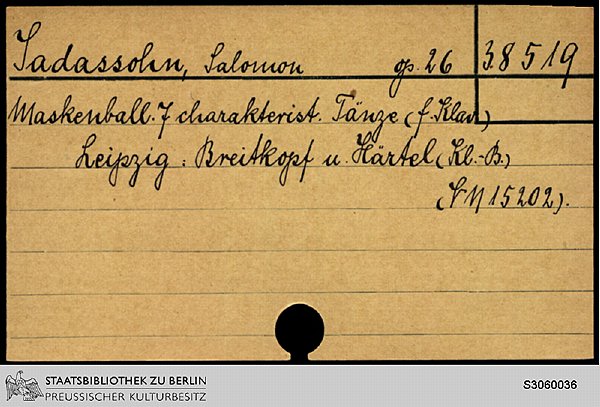 Jadassohn, Salomon op. 26 38519
Maskenball. 7 charakterist. Tänze (f. Klav.)
Leipzig: Breitkopf u. Härtel (Kl.-B.)
(VN 15202).
STAATSBIBLIOTHEK ZU BERLIN
PREUSSISCHER KULTURBESITZ
S3060036